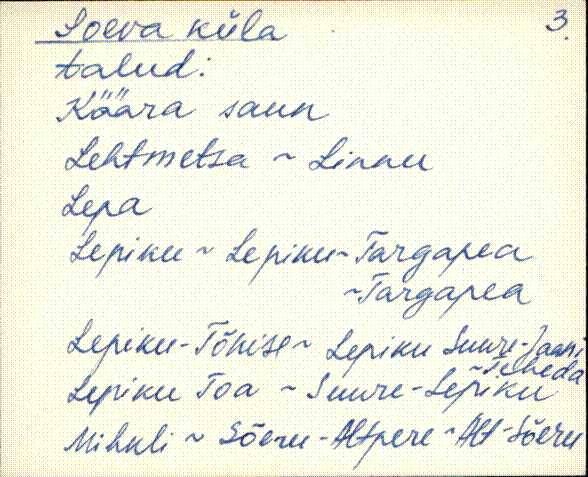 Soeva küla 3.
talud:
Kõõra saun
Lehtmetsa ~ Linnu
Lepa
Lepiku ~ Lepiku-Targapea
~Targapea
Lepiku-Tõnise ~ Lepiku Suure-Jaani
~Teheda
Lepiku Toa ~ Suure-Lepiku
Mihkli ~ Sõeru-Altpere ~ Alt-Sõeru